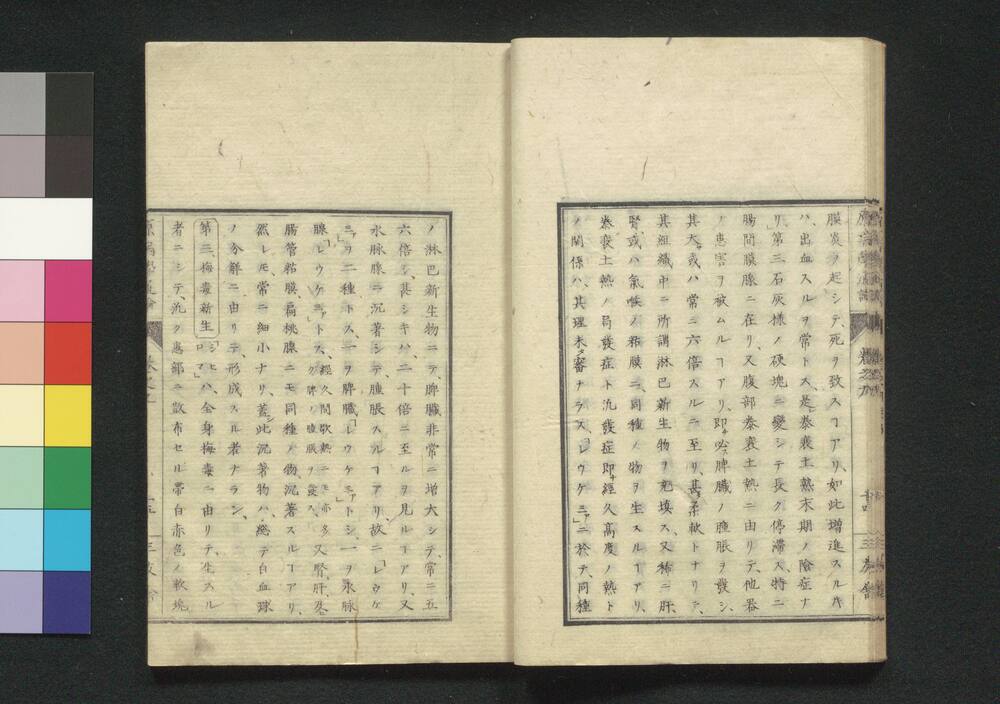 膜炎ヲ起シテ、死ヲ致スヿアリ、如此増進スルキ
ハ、出血スルヲ常トス、是レ㤗衰土熱末期ノ險症ナ
リ、第三石灰樣ノ硬塊ニ變シテ長ク停滯ス、特ニ
腸間膜腺ニ在リ、又腹部㤗衰土熱ニ由リテ、他器
ノ患害ヲ被ムルヿアリ、即必脾臓ノ腫脹ヲ發シ、
其大サ或ハ常ニ六倍スルニ至リ、甚タ柔軟トナリテ、
其組織中ニ所謂淋巴新生物ヲ充填ス、又稀ニ肝、
腎、或ハ氣喉ノ粘膜ニ、同種ノ物ヲ生スルヿアリ、
㤗衰土熱ノ局發症ト汎發症即經久高度ノ熱ト
ノ關係ハ、其理未タ審ナラス、「レウケミア」ニ於テ、同種
ノ淋巴新生物ニテ、脾臓非常ニ增大シテ、常ニ五
六倍シ、甚シキハ、二十倍ニ至ルヲ見ルヿアリ、又
水脉腺ニ沉著シテ、腫脹スルヿアリ、故ニ「レウケ
ミア」ヲ二種トス、一ヲ脾臓「レウケミア」トシ、一ヲ水脉
腺「レウケミア」トス、經久間歇熱ニモ亦多ク脾ノ腫脹ヲ發ス、又腎、肝、及
腸管粘膜、扁桃腺ニモ同種ノ物、沉著スルヿアリ、
然レモ、常ニ細小ナリ、蓋シ此沉著物ハ、總テ白血球
ノ分離ニ由リテ、形成スル者ナラン、
第三、梅毒新生「シヒロマ」ハ、全身梅毒ニ由リテ、生スル
者ニシテ、汎ク患部ニ散布セル帶白赤色ノ軟塊